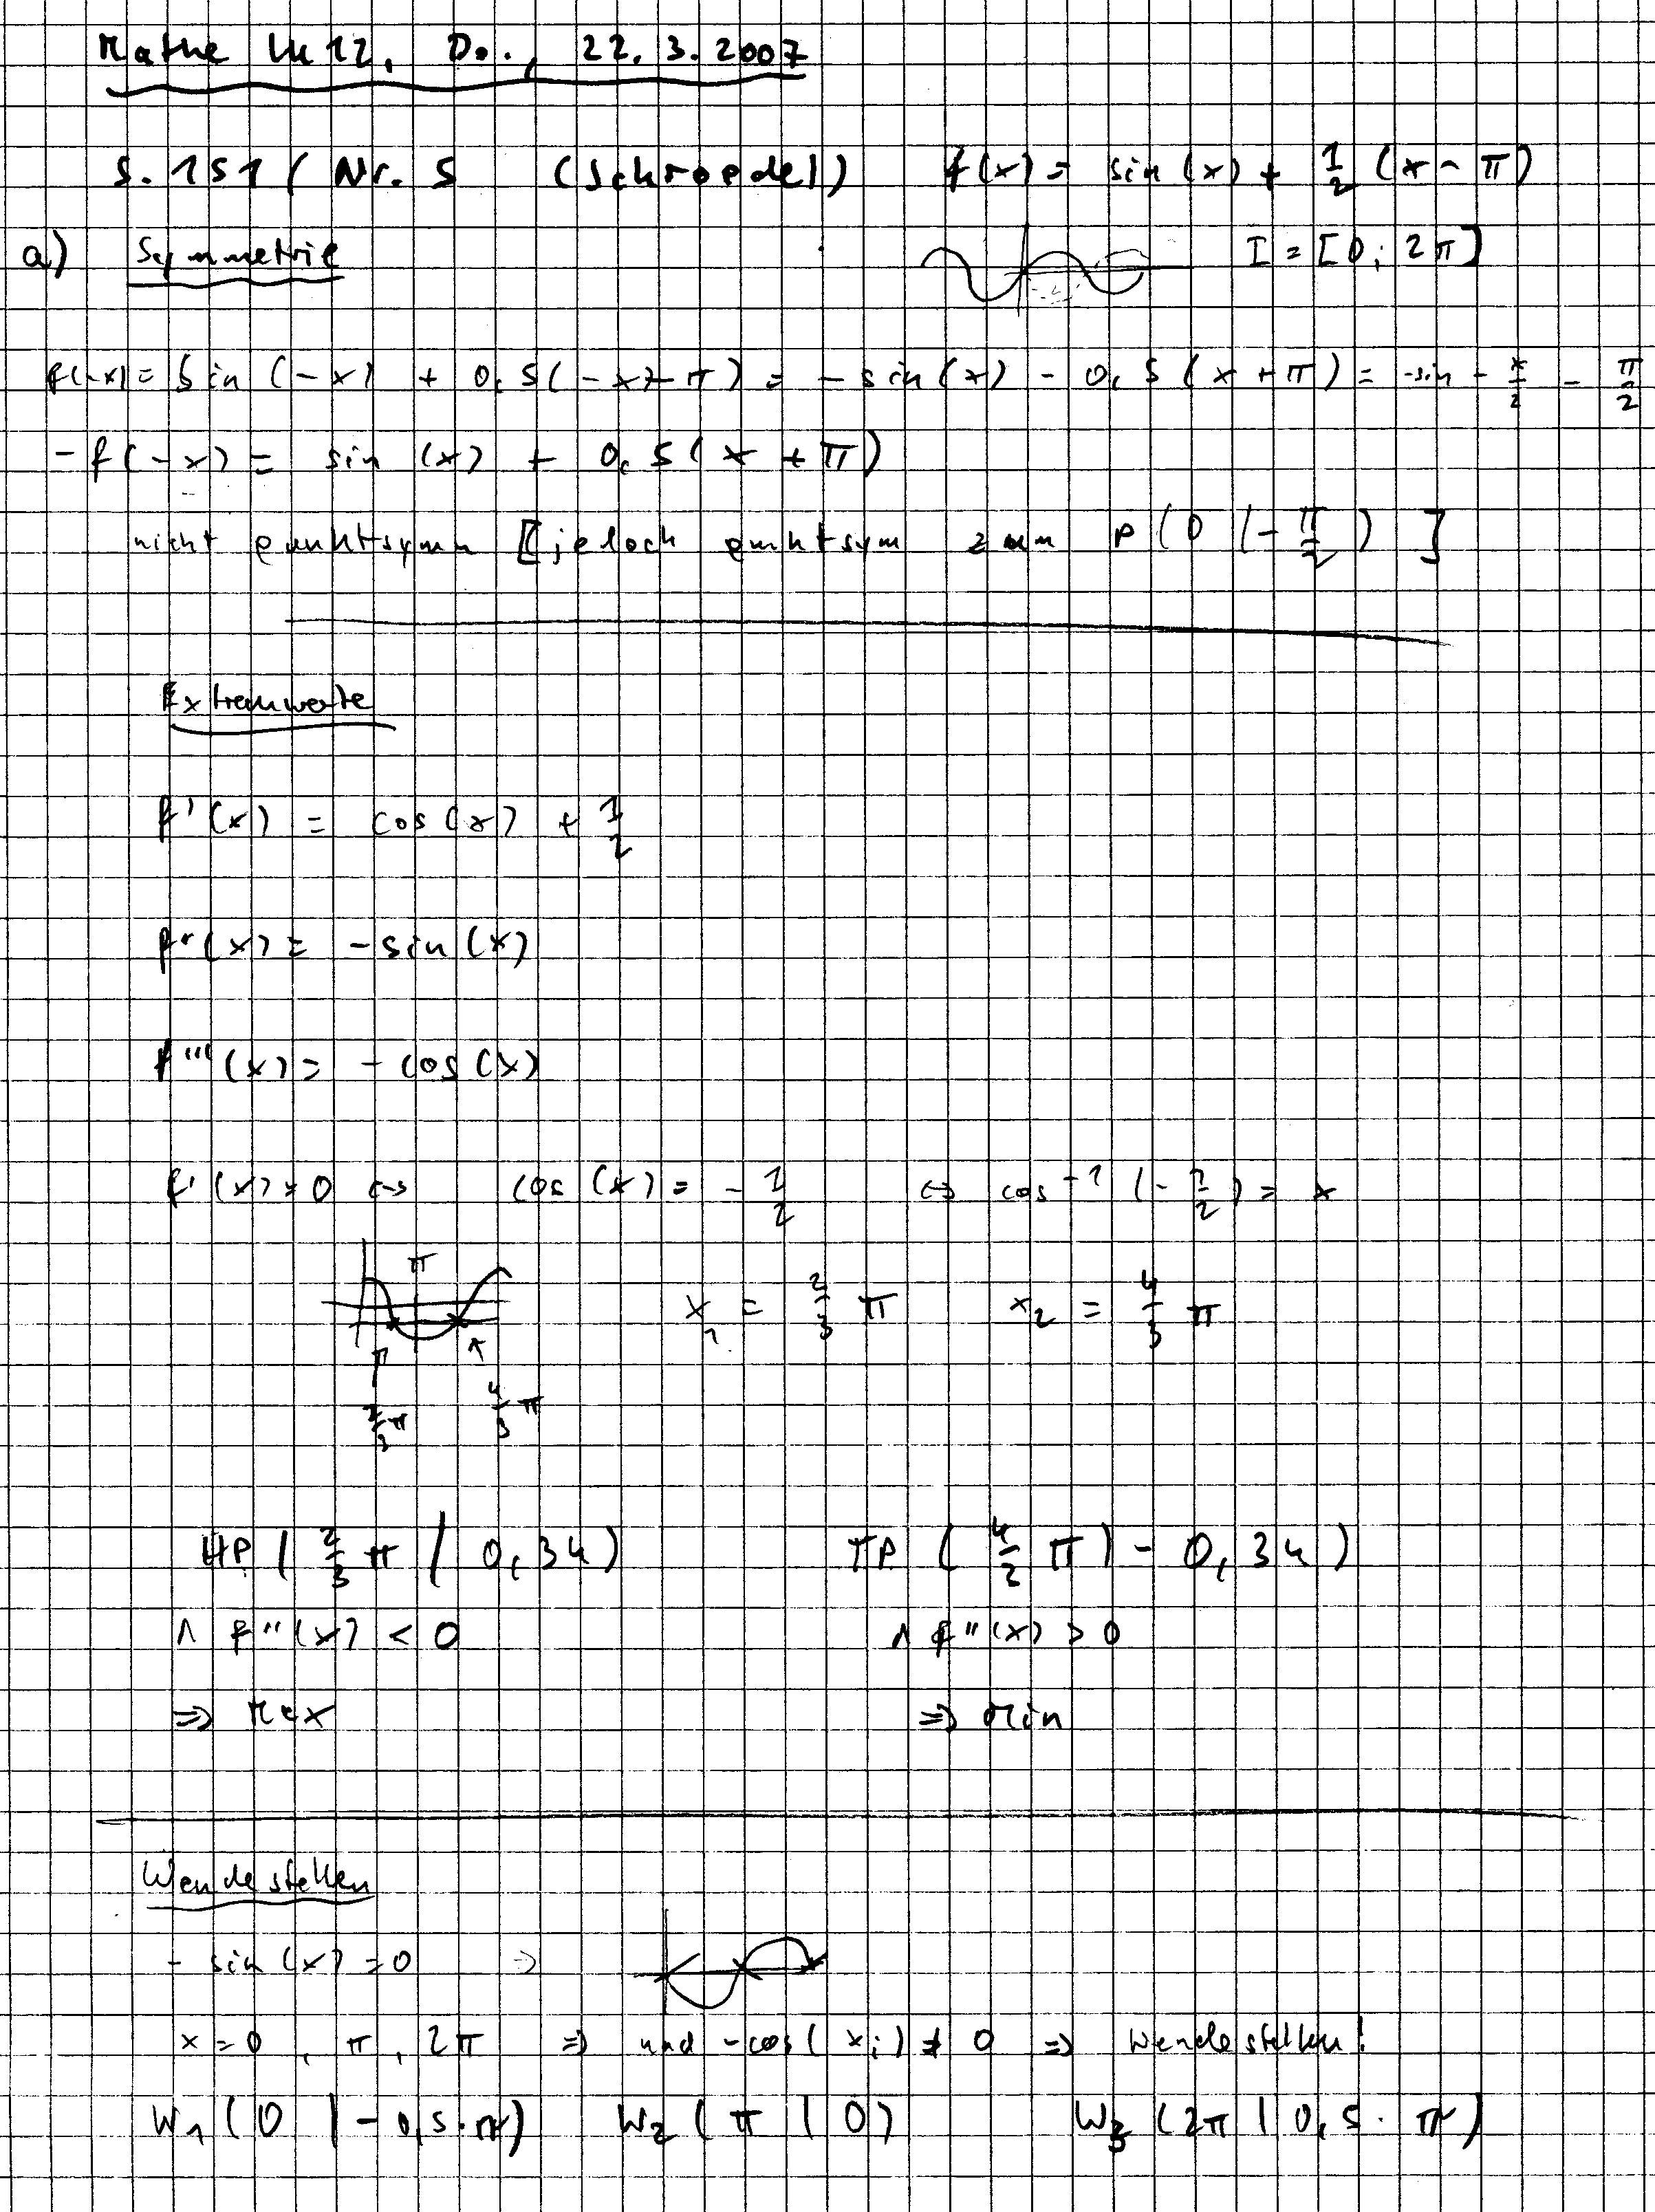 Mathe LK 12, Do., 22.3.2007
S. 151 / Nr. 5 (Schroedel) f(x) = sin(x) + 1/2 (x - π)
a) Symmetrie I = [0; 2π]
f(-x) = sin(-x) + 0,5(-x - π) = -sin(x) - 0,5(x + π) = -sin - x/2 - π/2
-f(-x) = sin(x) + 0,5(x + π)
nicht punktsymm [jedoch punktsym zum P(0 | -π/2)]
Extremwerte
f'(x) = cos(x) + 1/2
f''(x) = -sin(x)
f'''(x) = -cos(x)
f'(x) = 0 ⇔ cos(x) = -1/2 ⇔ cos⁻¹(-1/2) = x
π
x₁ = 2/3 π x₂ = 4/3 π
2/3 π 4/3 π
HP (2/3 π | 0,34) TP (4/3 π | -0,34)
∧ f''(x) < 0 ∧ f''(x) > 0
⇒ Max ⇒ Min
Wendestellen
-sin(x) = 0 ⇒
x = 0, π, 2π ⇒ und -cos(xᵢ) ≠ 0 ⇒ Wendestellen!
W₁(0 | -0,5·π) W₂(π | 0) W₃(2π | 0,5·π)